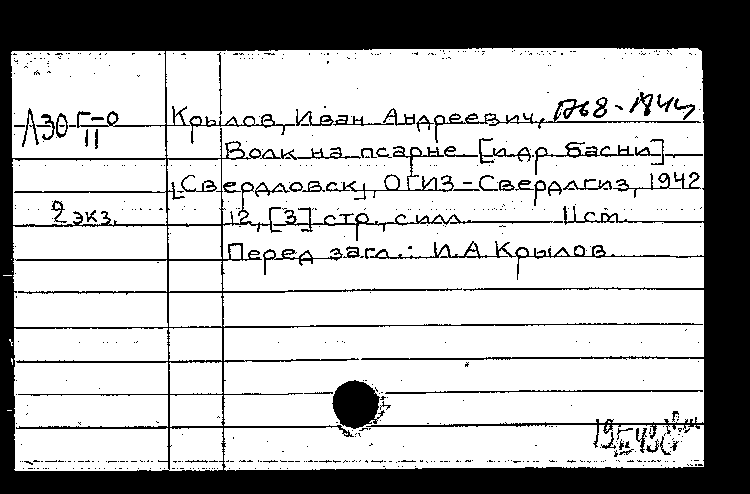 Л30 Г-0 Крылов, Иван Андреевич, 1768-1844
II
Волк на псарне [и др. басни].
[Свердловск], ОГИЗ-Свердлгиз, 1942
2 экз. 12, [3] стр., с илл. 11 см.
Перед загл.: И.А. Крылов.